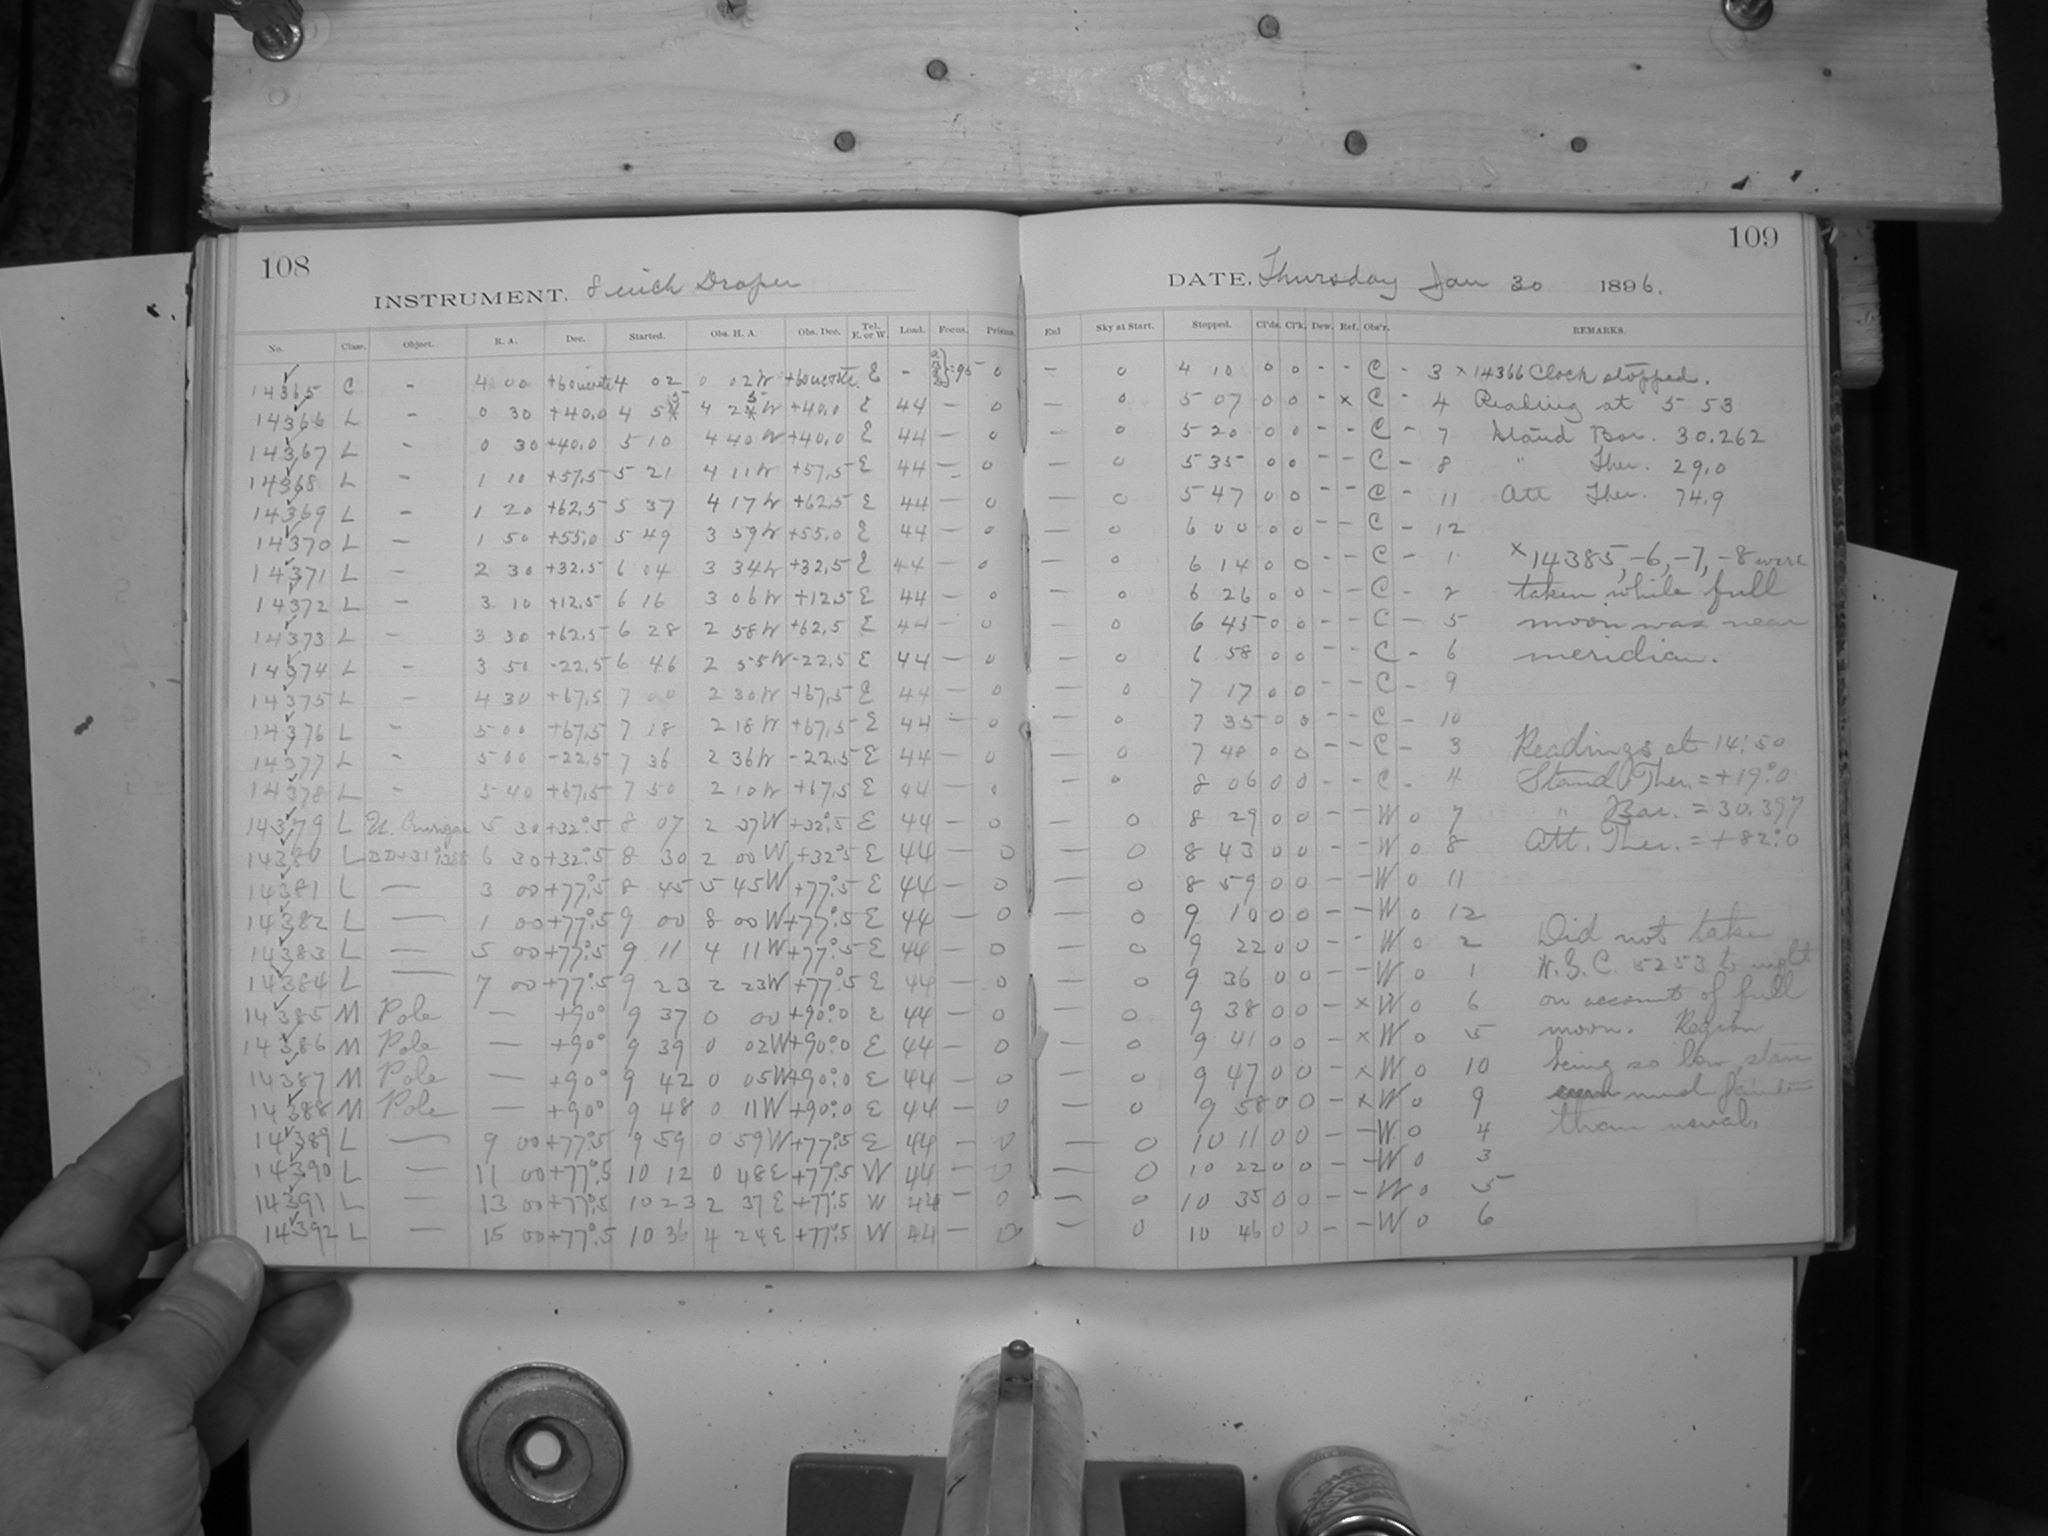 108
INSTRUMENT. 8 inch Draper
No. Class. Object. R. A. Dec. Started. Obs. H. A. Obs. Dec. Tel. E. or W. Load. Focus. Prisms.
14365 C - 4 00 4 02 0 02W E - =95 0
14366 L - 0 30 +40.0 4 55 4 25W +40.0 E 44 - 0
14367 L - 0 30 +40.0 5 10 4 40W +40.0 E 44 - 0
14368 L - 1 10 +57.5 5 21 4 11W +57.5 E 44 - 0
14369 L - 1 20 +62.5 5 37 4 17W +62.5 E 44 - 0
14370 L - 1 50 +55.0 5 49 3 59W +55.0 E 44 - 0
14371 L - 2 30 +32.5 6 04 3 34W +32.5 E 44 - 0
14372 L - 3 10 +12.5 6 16 3 06W +12.5 E 44 - 0
14373 L - 3 30 +62.5 6 28 2 58W +62.5 E 44 - 0
14374 L - 3 50 -22.5 6 46 2 55W -22.5 E 44 - 0
14375 L - 4 30 +67.5 7 00 2 30W +67.5 E 44 - 0
14376 L - 5 00 +67.5 7 18 2 18W +67.5 E 44 - 0
14377 L - 5 00 -22.5 7 36 2 36W -22.5 E 44 - 0
14378 L - 5 40 +67.5 7 50 2 10W +67.5 E 44 - 0
14379 L U. Aurigae 5 30 +32°.5 8 07 2 37W +32°.5 E 44 - 0
14380 L 6 30 +32°.5 8 30 2 00W +32°.5 E 44 - 0
14381 L — 3 00 +77°.5 8 45 5 45W +77°.5 E 44 - 0
14382 L — 1 00 +77°.5 9 00 8 00W +77°.5 E 44 - 0
14383 L — 5 00 +77°.5 9 11 4 11W +77°.5 E 44 - 0
14384 L — 7 00 +77°.5 9 23 2 23W +77°.5 E 44 - 0
14385 M Pole — +90° 9 37 0 00 +90°.0 E 44 - 0
14386 M Pole — +90° 9 39 0 02W +90°.0 E 44 - 0
14387 M Pole — +90° 9 42 0 05W +90°.0 E 44 - 0
14388 M Pole — +90° 9 48 0 11W +90°.0 E 44 - 0
14389 L — 9 00 +77°.5 9 59 0 59W +77°.5 E 44 - 0
14390 L — 11 00 +77°.5 10 12 0 48E +77°.5 W 44 - 0
14391 L — 13 00 +77°.5 10 23 2 37E +77°.5 W 44 - 0
14392 L — 15 00 +77°.5 10 36 4 24E +77°.5 W 44 - 0
109
DATE, Thursday Jan 30 1896.
Enl Sky at Start. Stopped. Cl'ds. Cl'k. Dew. Ref. Obs'r. REMARKS.
— 0 4 10 0 0 - - C - 3 × 14366 Clock stopped.
— 0 5 07 0 0 - × C - 4 Reading at 5 53
— 0 5 20 0 0 - - C - 7 Stand Bar. 30.262
— 0 5 35 0 0 - - C - 8 " Ther. 29.0
— 0 5 47 0 0 - - C - 11 Att Ther. 74.9
— 0 6 00 0 0 - - C - 12
— 0 6 14 0 0 - - C - 1 × 14385, -6, -7, -8 were
— 0 6 26 0 0 - - C - 2 taken while full
— 0 6 45 0 0 - - C - 5 moon was near
— 0 6 58 0 0 - - C - 6 meridian.
— 0 7 17 0 0 - - C - 9
— 0 7 35 0 0 - - C - 10
— 0 7 48 0 0 - - C - 3 Readings at 14:50
— 0 8 06 0 0 - - C - 4 Stand Ther. = +19°.0
— 0 8 29 0 0 - - W 0 7 " Bar. = 30.397
— 0 8 43 0 0 - - W 0 8 Att. Ther. = +82°.0
— 0 8 59 0 0 - - W 0 11
— 0 9 10 0 0 - - W 0 12
— 0 9 22 0 0 - - W 0 2 Did not take
— 0 9 36 0 0 - - W 0 1 N. G. C. 5253 to night
— 0 9 38 0 0 - × W 0 6 on account of full
— 0 9 41 0 0 - × W 0 5 moon. Region
— 0 9 47 0 0 - × W 0 10 being so low, stars
— 0 9 58 0 0 - × W 0 9 much fainter
— 0 10 11 0 0 - - W 0 4 than usual.
— 0 10 22 0 0 - - W 0 3
— 0 10 35 0 0 - - W 0 5
— 0 10 46 0 0 - - W 0 6